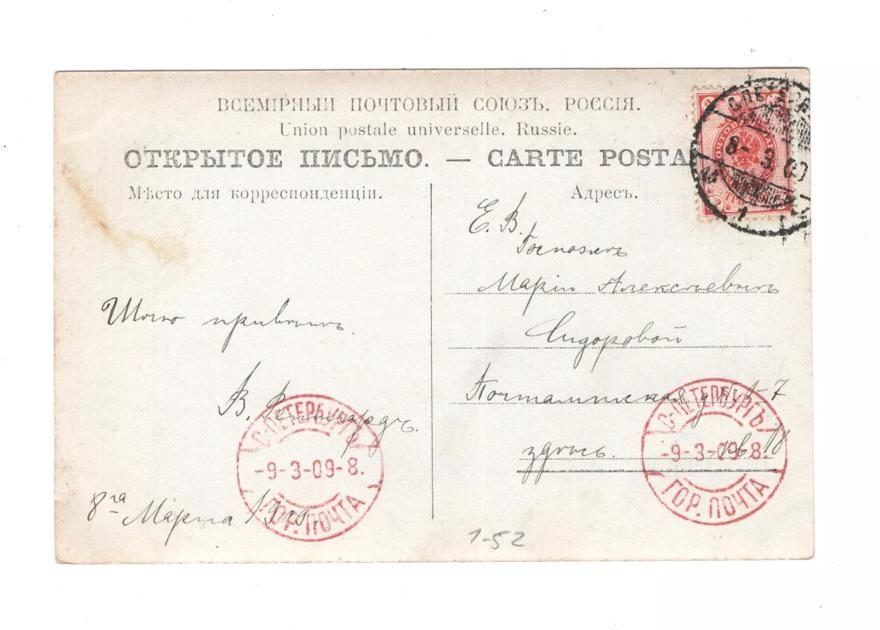 ВСЕМІРНЫЙ ПОЧТОВЫЙ СОЮЗЪ. РОССІЯ.
Union postale universelle. Russie.
ОТКРЫТОЕ ПИСЬМО. — CARTE POSTA
Мѣсто для корреспонденціи.
Адресъ.
Шлю привѣтъ.
В.
8го Марта 1909.
Е. В.
Госпожѣ
Маріи Алексѣевнѣ
Сидоровой
Почтамтская д № 7
здѣсь. кв. 18
С-ПЕТЕРБУРГЪ
-9-3-09-8.
ГОР. ПОЧТА
С-ПЕТЕРБУРГЪ
-9-3-09-8.
ГОР. ПОЧТА
1-52